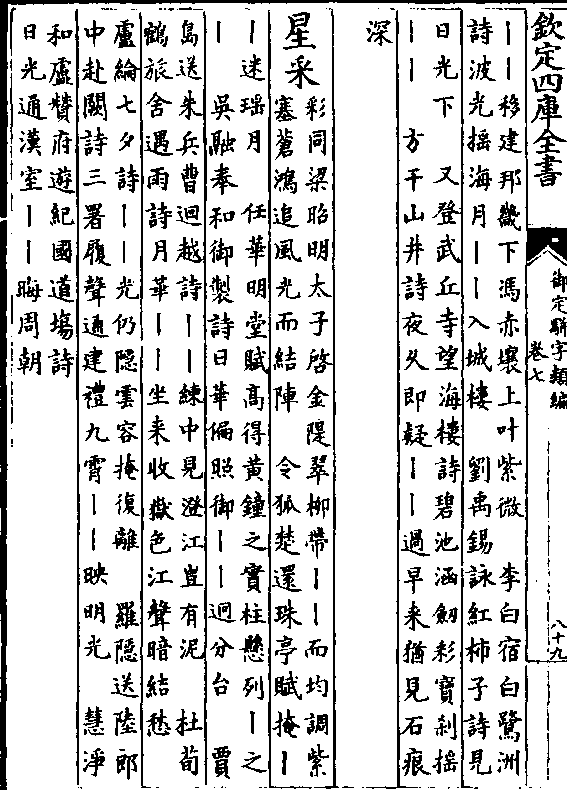 欽定四庫全書
御定駢字類編
卷七
八十九
——移建那畿下馮赤壤上叶紫微　李白宿白鷺洲
詩波光揺海月——入城樓　劉禹錫詠紅柿子詩見
日光下　又登武丘寺望海樓詩碧池涵劒彩寶刹揺
——　方干山井詩夜久即疑——過早来猶見石痕
深
星采　彩同梁昭明太子啓金隄翠柳帶——而均調紫
塞蒼鴻追風光而結陣　令狐楚還珠亭賦掩—
—迷瑶月　任華明堂賦高得黄鐘之實柱懸列—之
—　吴融奉和御製詩日華偏照御——迥分台　賈
島送朱兵曹迴越詩——練中見澄江豈有泥　杜荀
鶴旅舍遇雨詩月華——坐来收嶽色江聲暗結愁
盧綸七夕詩——光仍隠雲容掩復離　羅隠送陸郎
中赴闕詩三署履聲通建禮九霄——映明光　慧淨
和盧贊府遊紀國道塲詩
日光通漢室——晦周朝